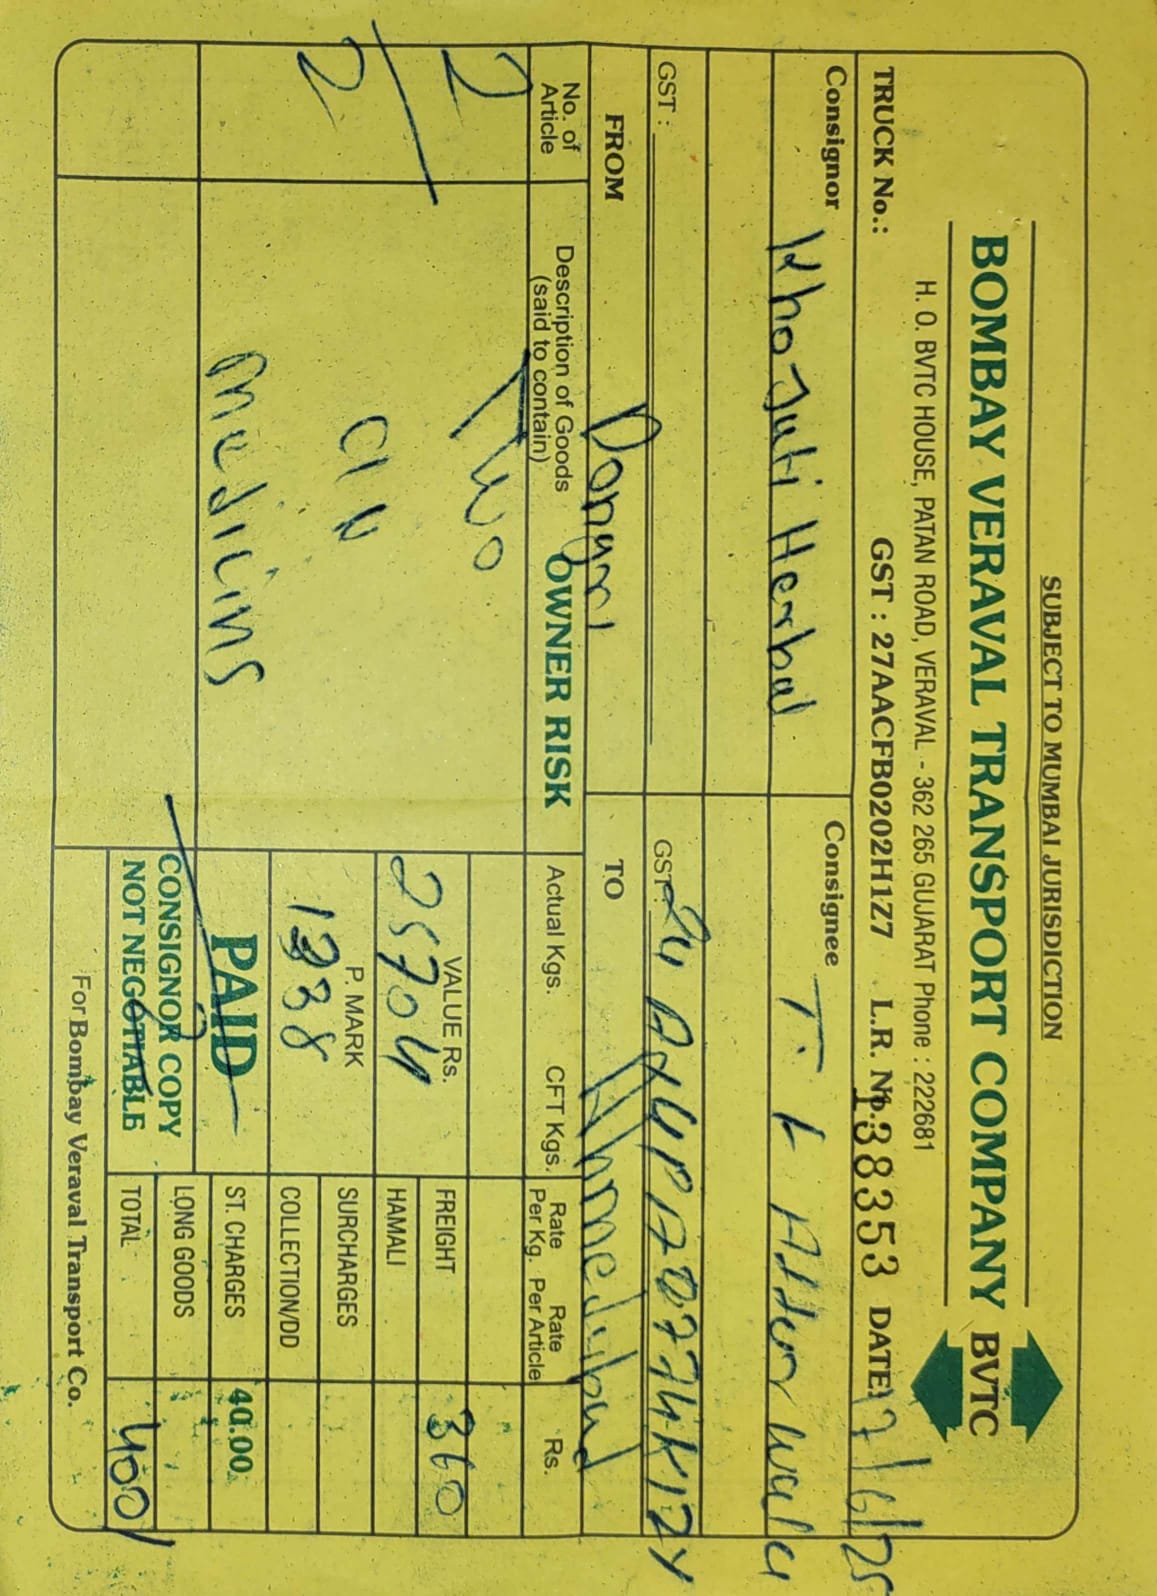 SUBJECT TO MUMBAI JURISDICTION
BOMBAY VERAVAL TRANSPORT COMPANY BVTC
H. O. BVTC HOUSE, PATAN ROAD, VERAVAL - 362 265 GUJARAT Phone : 222681
TRUCK No.: GST : 27AACFB0202H1Z7 L.R. No. 138353 DATE: 17/6/25
Consignor Khojati Herbal Consignee T. k Atterwala
GST : GST :
FROM Dongri TO Ahmedabad
No. of Article Description of Goods (said to contain) OWNER RISK Actual Kgs. CFT Kgs. Rate Per Kg. Rate Per Article Rs.
2 Two VALUE Rs. 25704 FREIGHT 360
HAMALI
2 P. MARK 1338 SURCHARGES
COLLECTION/DD
medicine PAID ST. CHARGES 40.00
CONSIGNOR COPY LONG GOODS
NOT NEGOTIABLE TOTAL 400/
For Bombay Veraval Transport Co.